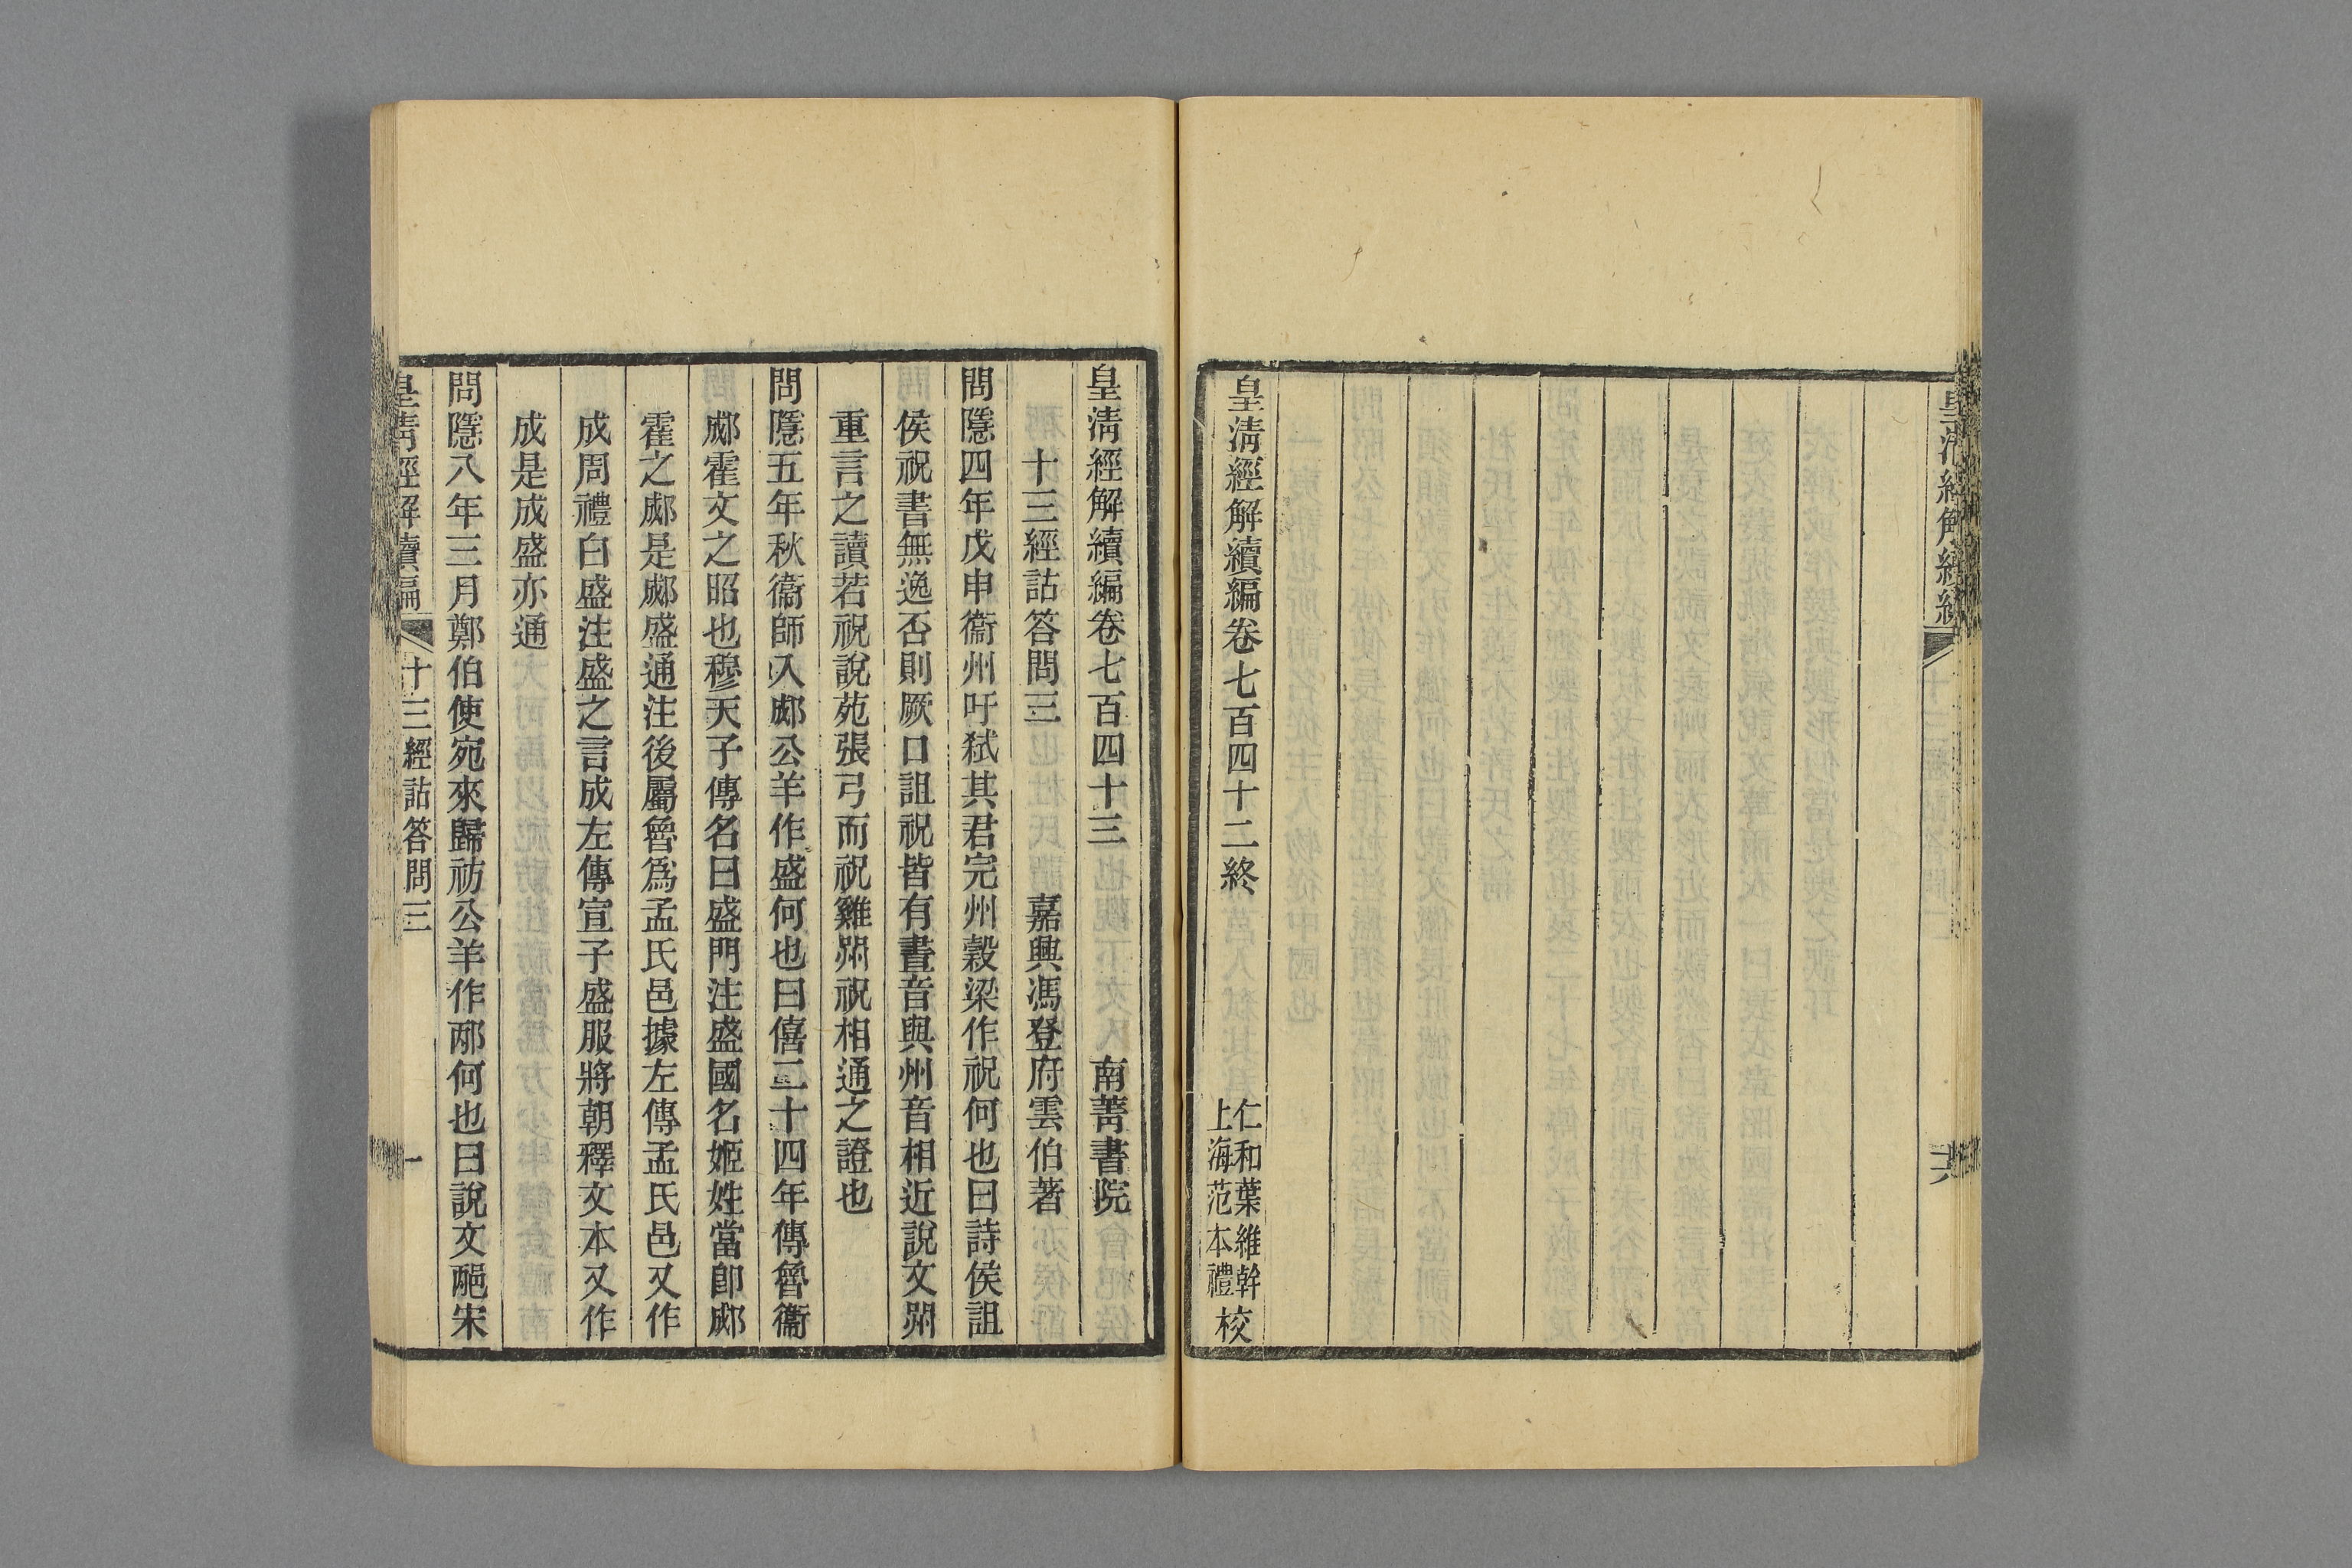 皇清經解續編
皇清經解續編卷七百四十二終
仁和葉維幹
上海范本禮
校
皇清經解續編卷七百四十三
南菁書院
十三經詁答問三
嘉興馮登府雲伯著
問隱四年戊申衞州吁弒其君完州穀梁作祝何也曰詩侯詛
侯祝書無逸否則厥口詛祝皆有晝音與州音相近說文喌
重言之讀若祝說苑張弓而祝雞喌祝相通之證也
問隱五年秋衞師入郕公羊作盛何也曰僖二十四年傳魯衞
郕霍文之昭也穆天子傳名曰盛門注盛國名姬姓當卽郕
霍之郕是郕盛通注後屬魯爲孟氏邑據左傳孟氏邑又作
成周禮白盛注盛之言成左傳宣子盛服將朝釋文本又作
成是成盛亦通
問隱八年三月鄭伯使宛來歸祊公羊作邴何也曰說文郒宋
皇清經解續編
十三經詁答問三
一